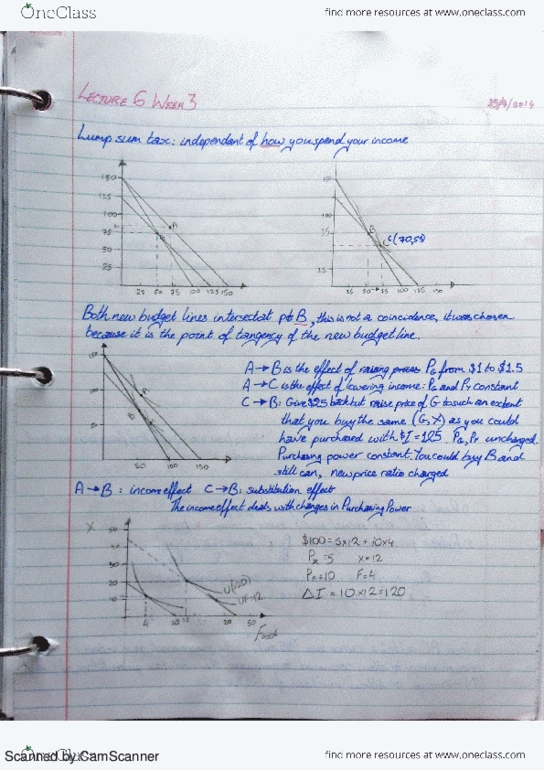 OneClass
find more resources at www.oneclass.com
LECTURE 6 WEEK 3
Lump sum tax: independent of how you spend your income
150
125
100
75
50
25
A
25 50 75 100 125 150
B
C(70,55)
25 50 75 100 125
Both new budget lines intersect at pt B, this is not a coincidence, it was chosen
because it is the point of tangency of the new budget line.
A→B is the effect of raising prices PG from $1 to $1.5
A→C is the effect of lowering income: PG and PY constant
C→B: Give $25 back but raise price of G to such an extent
that you buy the same (G,Y) as you could
have purchased with $I = 125 PG, PY unchanged.
Purchasing power constant. You could buy B and
still can, new price ratio charged
A
B
50 100 150
A→B: income effect C→B: substitution effect
The income effect deals with changes in Purchasing Power
X
$100 = 5x12 + 10x4
Px = 5 X=12
PF=10 F=4
ΔI = 10x12=120
U(20)
U=12
4 10 12 20 50
Food
Scanned by CamScanner
OneClass
find more resources at www.oneclass.com